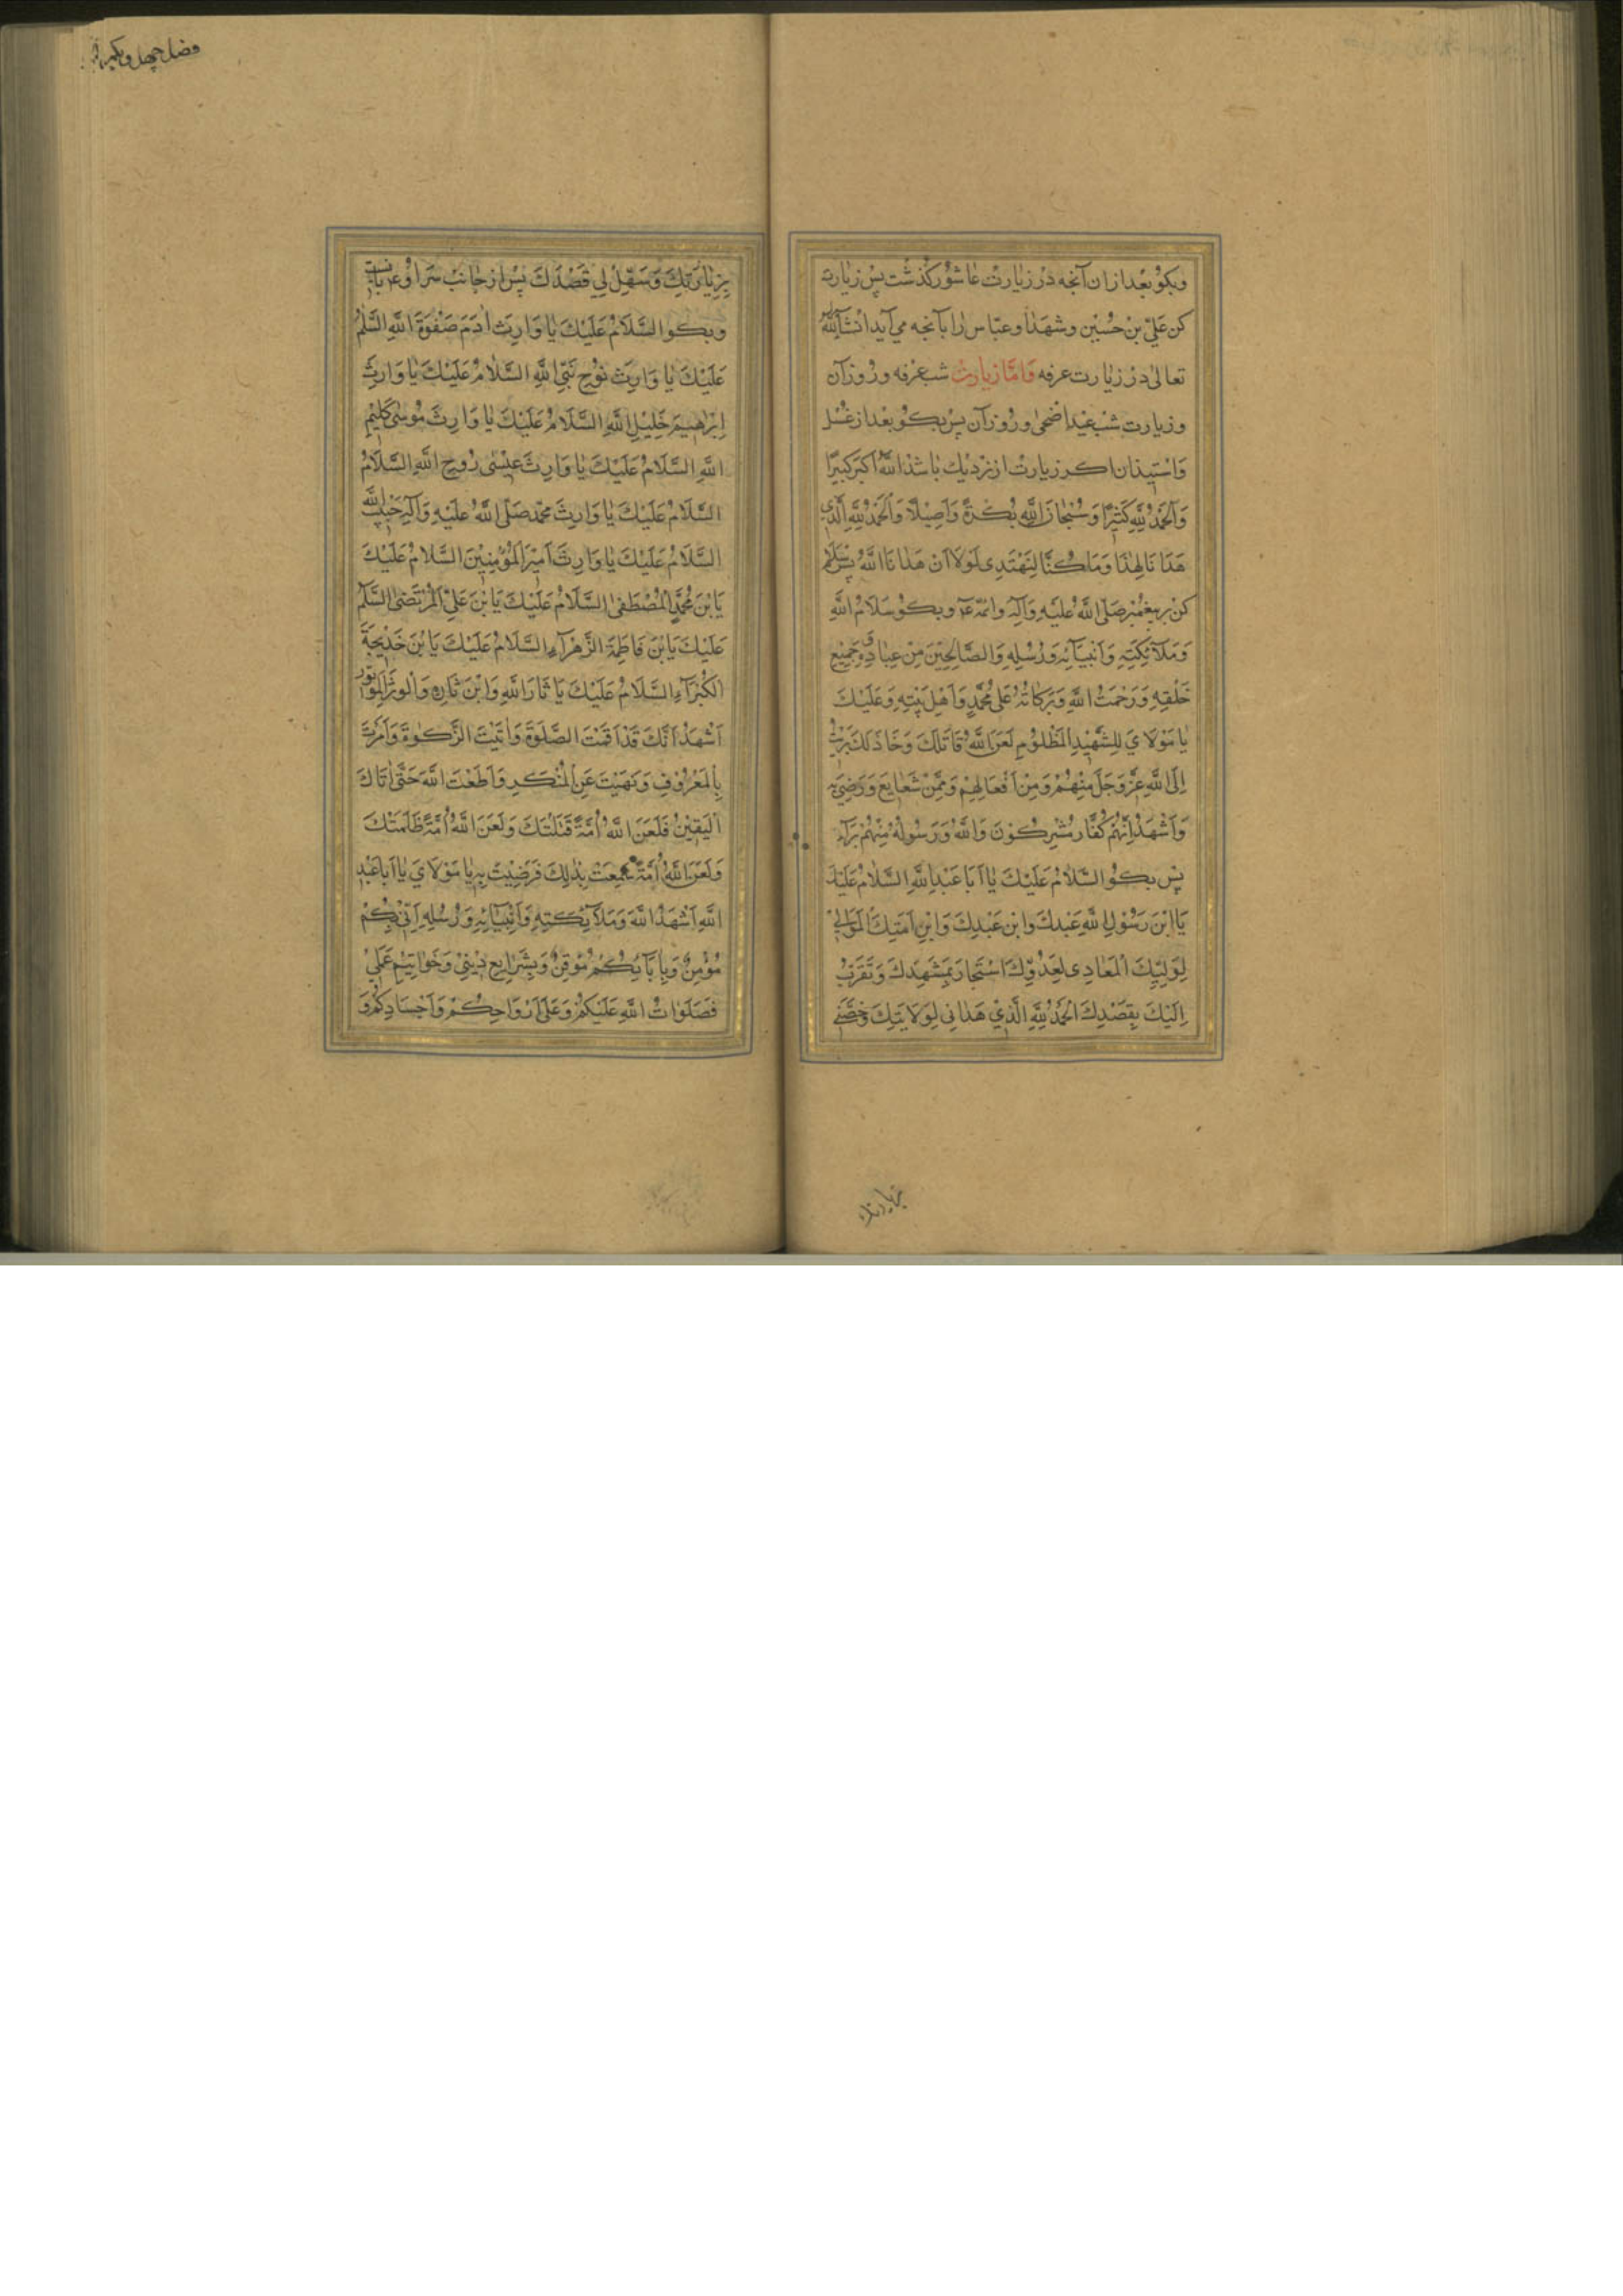 وبكو بعد ازان آنجه در زیارت عاشور کذشت پس زیارت
کن عَلِیّ بن حُسَیْن وشهدا وعبّاس را بآنجه می آید انشآالله
تعالی در زیارت عرفه فَامّا زیارت شب عرفه وروز آن
وزیارت شب عید اضحی وروز آن پس بکو بعد از غسل
وَاستیذان اکر زیارت از نزدیك باشد اَللّهُ اَکْبَرُ کَبیرًا
وَالْحَمْدُ لِلّهِ کَثیرًا وَسُبْحانَ اللّهِ بُکْرَةً وَاَصیلاً وَالْحَمْدُ لِلّهِ الَّذی
هَدَانَا لِهٰذَا وَمَا كُنَّا لِنَهْتَدِی لَوْلَا اَنْ هَدٰانَا اللّٰهُ پس سلام
کن بر پیغمبر صَلَّی اللّهُ عَلَیْهِ وَآلِهِ وائمّه عۤ وبکو سَلَامُ اللّهِ
وَمَلَآئِکَتِهِ وَاَنْبِیَآئِهِ وَرُسُلِهِ وَالصَّالِحِیْنَ مِنْ عِبَادِهِ وَجَمِیْعِ
خَلْقِهِ وَرَحْمَتُ اللّهِ وَبَرَکَاتُهُ عَلٰی مُحَمَّدٍ وَاَهْلِ بَیْتِهِ وَعَلَیْكَ
یَا مَوْلَایَ لِلشَّهِیْدِ الْمَظْلُوْمِ لَعَنَ اللّهُ قَاتَلَكَ وَخَاذَلَكَ بَرِئْتُ
اِلَی اللّهِ عَزَّ وَجَلَّ مِنْهُمْ وَمِنْ اَفْعَالِهِمْ وَمِمَّنْ شَعَایَعَ وَرَضِیَ بِهِ
وَاَشْهَدُ اِنَّهُمْ کُفَّار مُشْرِکُوْنَ وَاللّهُ وَرَسُولُهُ مِنْهُمْ بَرَآء
پس بکو اَلسَّلَامُ عَلَیْكَ یَا اَبَا عَبْدِ اللّهِ السَّلَامُ عَلَیْكَ
یَا ابْنَ رَسُوْلِ اللّهِ عَبْدكَ وابْن عَبْدِكَ وَابْنِ اَمَتِكَ الْمَوَالِیْ
لِوَلِیِّكَ الْمَعَادِی لِعَدُوِّكَ اسْتَجَارَ بِمَشْهَدِكَ وَتَقَرَّبَ
اِلَیْكَ بِقَصْدِكَ الْحَمْدُ لِلّهِ الَّذِیْ هَدٰانِی لِوَلَایَتِكَ وَخَصَّنِی
بزیارتك
فصل چهل ویکم
بِزِیَارَتِكَ وَسَهِّلْ لِی قَصْدَكَ پس از جانب سر او
وبکو السَّلَامُ عَلَیْكَ یَا وَارِثَ اٰدَمَ صَفْوَةِ اللّهِ السَّلٰمُ
عَلَیْكَ یَا وَارِثَ نُوْحٍ نَبِیِّ اللّهِ السَّلَامُ عَلَیْكَ یَا وَارِثَ
اِبْرٰهِیمَ خَلِیْلِ اللّهِ السَّلَامُ عَلَیْكَ یَا وَارِثَ مُوسٰی کَلِیْمِ
اللّهِ السَّلَامُ عَلَیْكَ یَا وَارِثَ عِیْسٰی رُوحِ اللّهِ السَّلَامُ
السَّلَامُ عَلَیْكَ یَا وَارِثَ مُحَمَّد صَلَّی اللّهُ عَلَیْهِ وَآلِهِ حَبِیْبِ اللّهِ
السَّلَامُ عَلَیْكَ یَا وَارِثَ اَمِیْرَ الْمُؤْمِنِیْنَ السَّلَامُ عَلَیْكَ
یَا بْنَ مُحَمَّدٍ الْمُصْطَفٰی السَّلَامُ عَلَیْكَ یَا بْنَ عَلِیِّ الْمُرْتَضٰی السَّلَام
عَلَیْكَ یَا بْنَ فَاطِمَةَ الزَّهْرَآءِ السَّلَامُ عَلَیْكَ یَا بْنَ خَدِیْجَةَ
الْکُبْرَآءِ السَّلَامُ عَلَیْكَ یَا ثَارَ اللّهِ وَابْنَ ثَارِهِ وَالْوِتْرَ الْمَوْتُور
اَشْهَدُ اَنَّكَ قَدْ اَقَمْتَ الصَّلٰوةَ وَاٰتَیْتَ الزَّکٰوةَ وَاَمَرْتَ
بِالْمَعْرُوْفِ وَنَهَیْتَ عَنِ الْمُنْکَرِ وَاَطَعْتَ اللّهَ حَتّٰی اَتَاكَ
الْیَقِیْنُ فَلَعَنَ اللّهُ اُمَّةً قَتَلَتْكَ وَلَعَنَ اللّهُ اُمَّةً ظَلَمَتْكَ
وَلَعَنَ اللّهُ اُمَّةً سَمِعَتْ بِذٰلِكَ فَرَضِیَتْ بِهِ یَا مَوْلَایَ یَا اَبَا عَبْدِ
اللّهِ اَشْهَدُ اللّهَ وَمَلَآئِکَتِهِ وَاَنْبِیَآئِهِ وَرُسُلِهِ اَنِّیْ بِکُمْ
مُؤْمِنٌ وَبِاِبَآئِکُمْ مُوْقِنٌ وَبِشَرَایِعِ دِیْنِیْ وَخَوَاتِیْمِ عَمَلِیْ
فَصَلَوَاتُ اللّهِ عَلَیْکُمْ وَعَلٰی اَرْوَاحِکُمْ وَاَجْسَادِکُمْ وَ